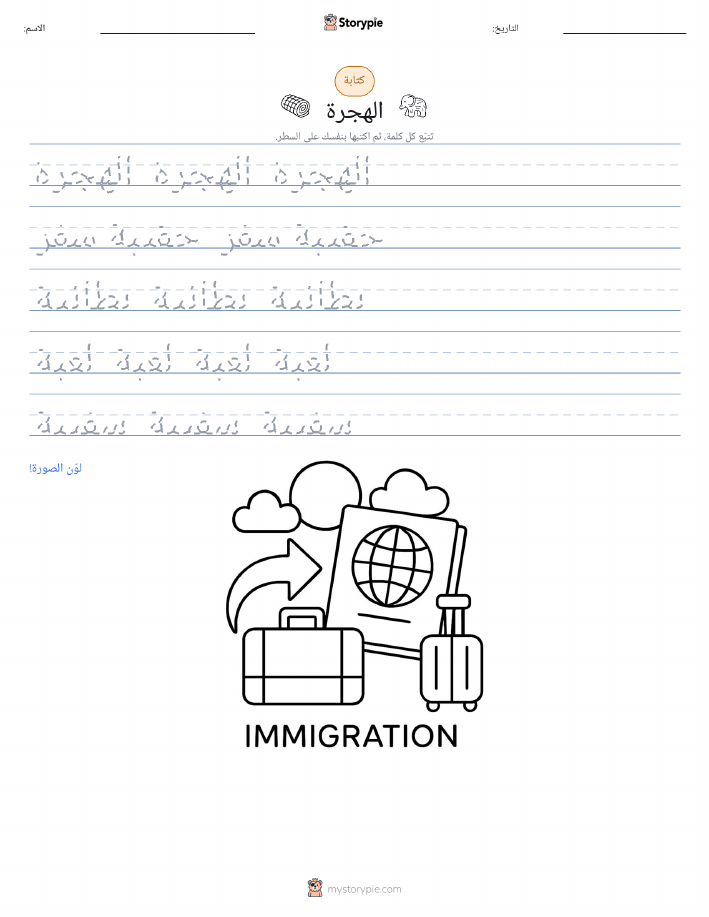 الاسم:
Storypie
التاريخ:
كتابة
الهجرة
تتبّع كل كلمة، ثم اكتبها بنفسك على السطر.
الهجرة الهجرة الهجرة
حقيبة سفر حقيبة سفر
بطانية بطانية بطانية
لعبة لعبة لعبة لعبة
سفينة سفينة سفينة
لوّن الصورة!
IMMIGRATION
mystorypie.com